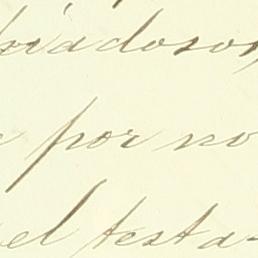 piadosos,
e por no
el testa-